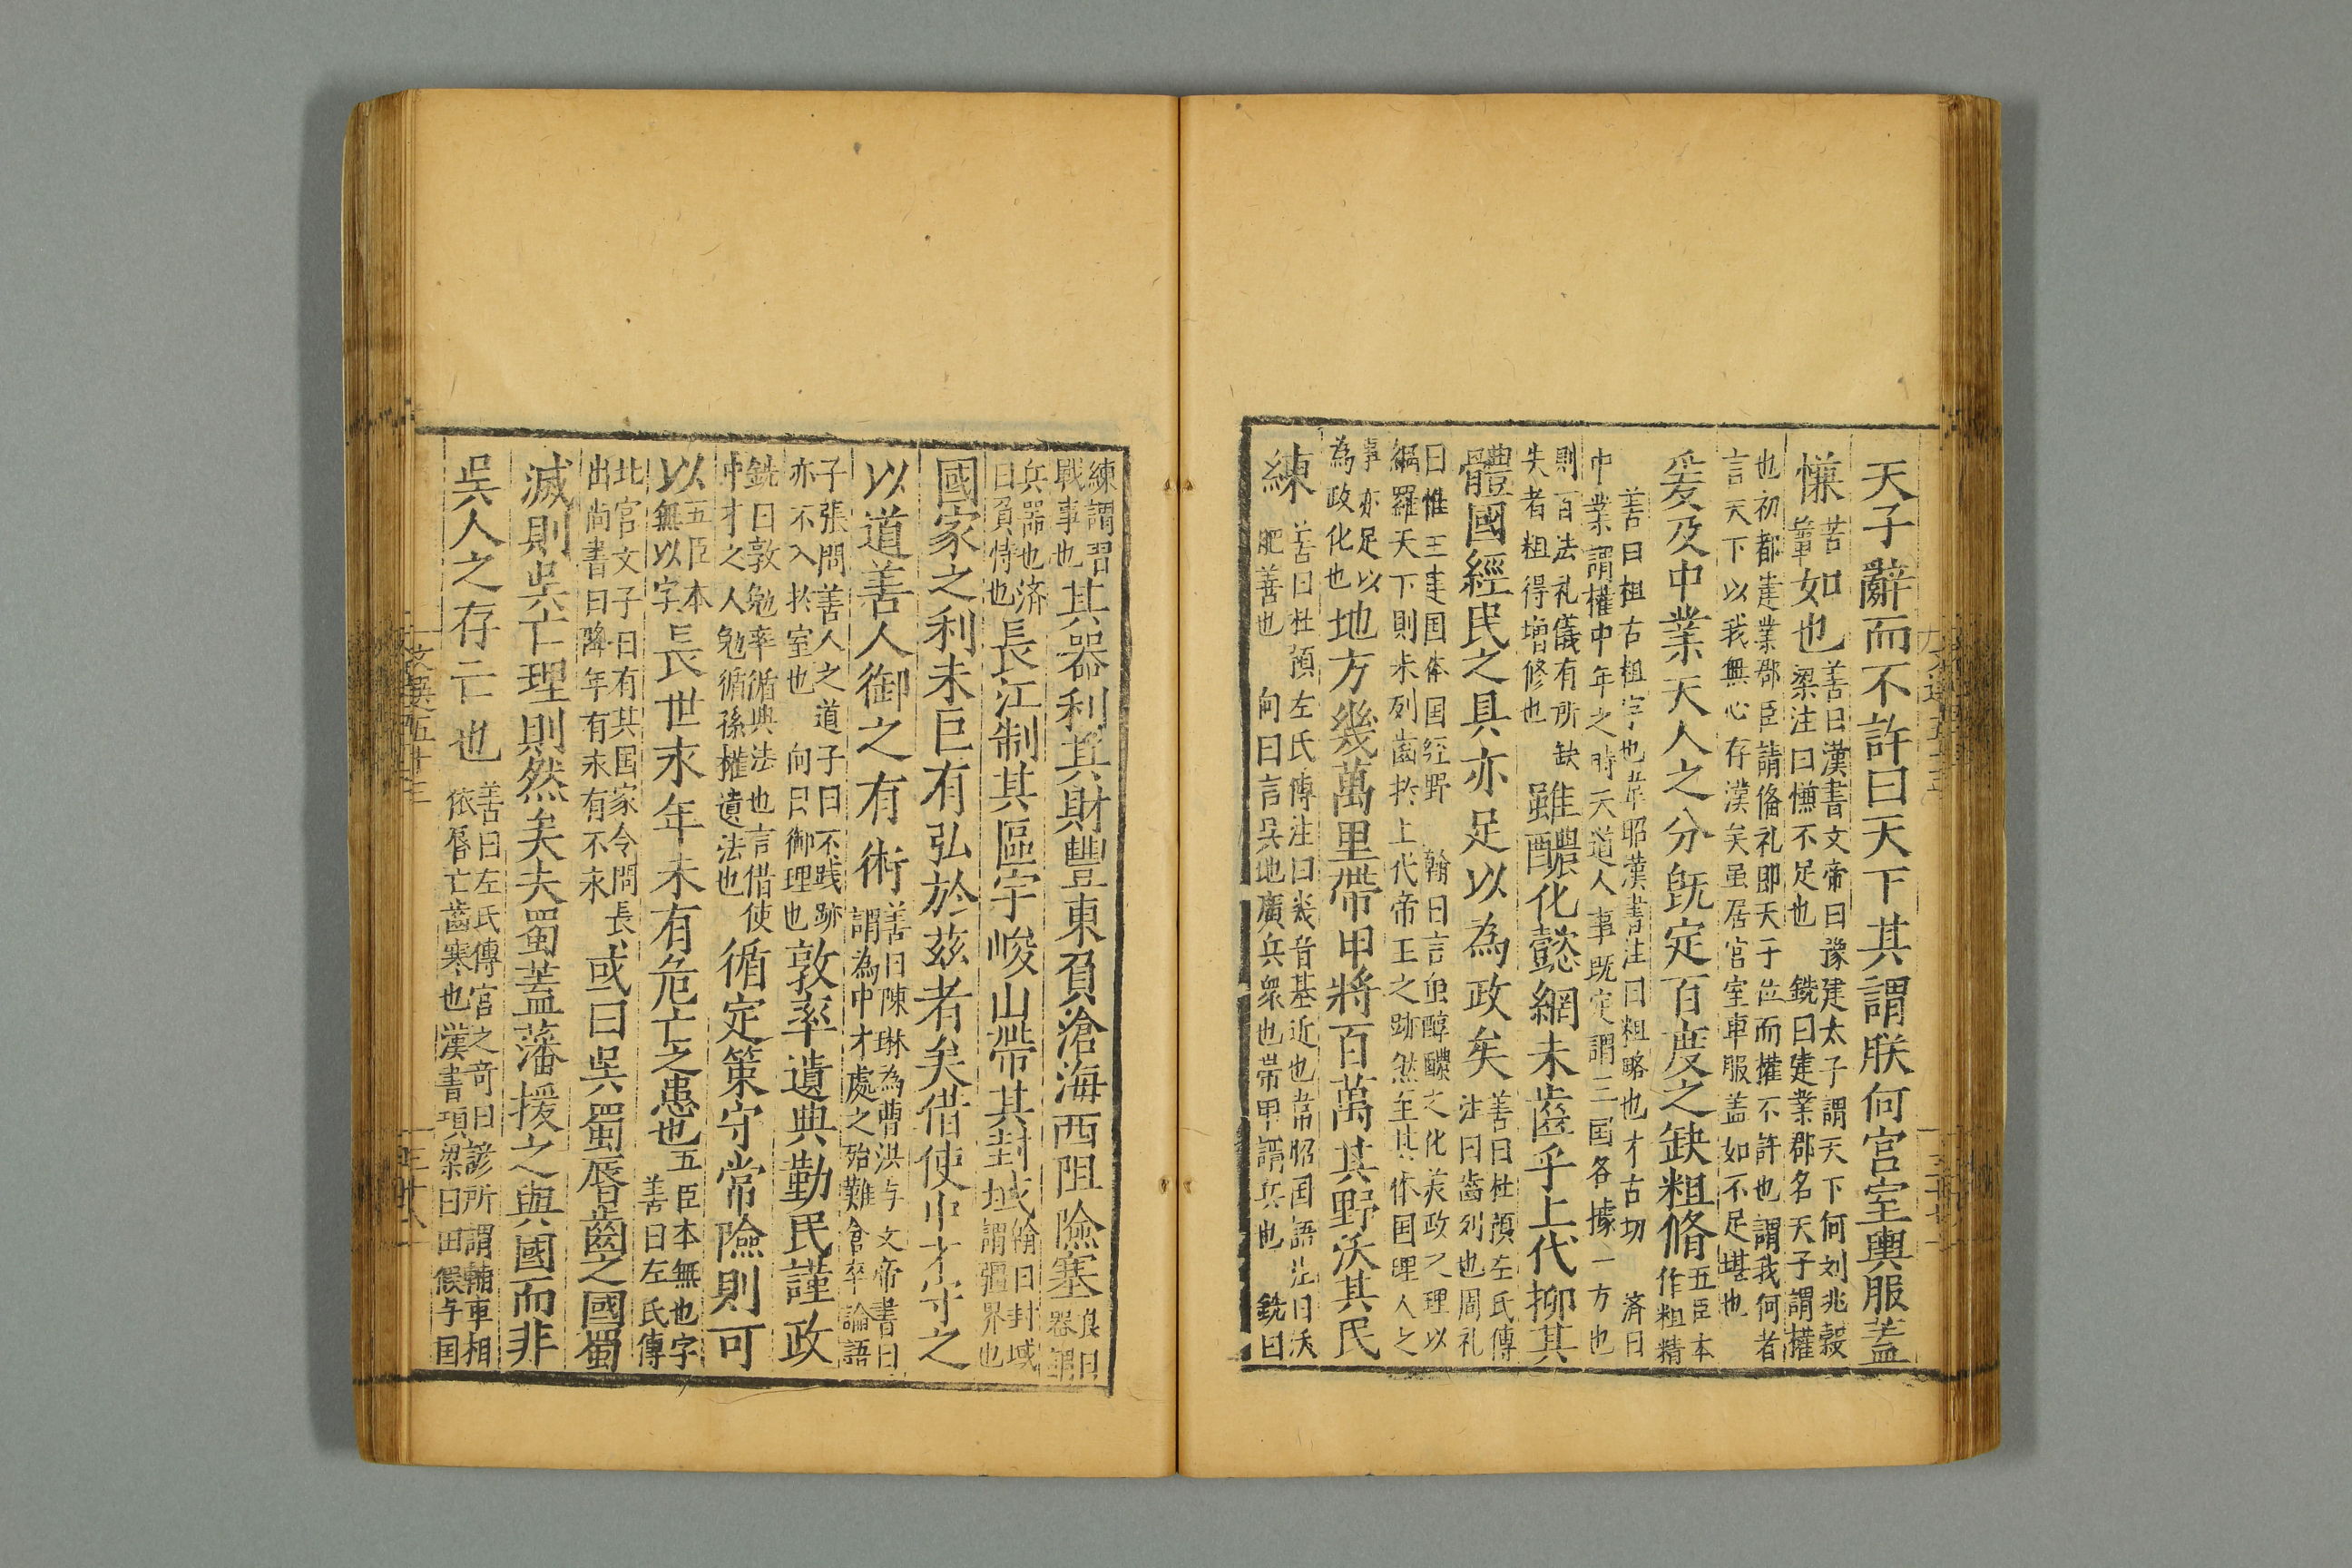 天子辭而不許曰天下其謂朕何宮室輿服蓋
慊苦簟如也善曰漢書文帝曰豫建太子謂天下何刘兆穀梁注曰慊不足也 銑曰建業郡名天子謂權
也初都建業郡臣請俻礼即天子位而權不許也謂我何者言天下以我無心存漢矣虽居宫室車服盖如不足堪也
爰及中業天人之分旣定百度之缺粗脩五臣本作粗精
善曰粗古粗字也韋昭漢書注曰粗略也才古切 済曰中業謂權中年之時天道人事既定謂三囯各據一方也
則百法礼儀有所缺失者粗得增修也雖醲化懿網未齒乎上代抑其
體國經民之具亦足以為政矣善曰杜預左氏傳注曰齒列也周礼
曰惟王建囯体囯经野 翰曰言虽醇醲之化美政之理以綱羅天下則未列齒扵上代帝王之跡然至其体囯理人之
事亦足以為政化也地方幾萬里帶甲將百萬其野沃其民
練善曰杜預左氏傳注曰幾音基近也韋昭囯語注曰沃肥善也 向曰言吴地廣兵衆也帶甲謂兵也 銑曰
練謂習戰事也其器利其財豐東負滄海西阻險塞良曰器謂
兵器也済曰負恃也長江制其區宇峻山帶其封域翰曰封域謂疆界也
國家之利未巨有弘於茲者矣借使中才守之
以道善人御之有術善曰陳琳為曹洪与文帝書曰謂為中才處之殆難倉卒論語
子張問善人之道子曰不践跡亦不入扵室也 向曰御理也敦率遺典勤民謹政
銑曰敦勉率循典法也言借使中才之人勉循孫權遺法也循定策守常險則可
以五臣本無以字長世永年未有危亡之患也五臣本無也字善曰左氏傳
北宫文子曰有其囯家令問長出尚書曰降年有永有不永或曰吳蜀脣齒之國蜀
滅則吳亡理則然矣夫蜀蓋藩援之與國而非
吳人之存亡也善曰左氏傳宫之奇曰諺所謂輔車相依唇亡齒寒也漢書項梁曰田假与囯